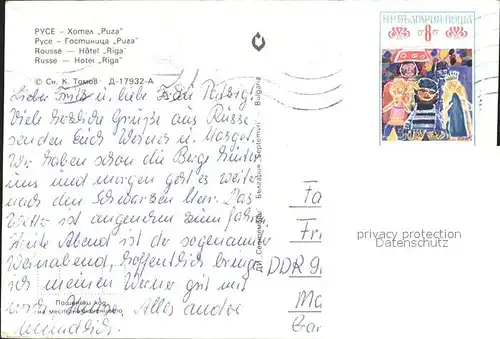 РУСЕ — Хотел „Рига"
Русе — Гостиница „Рига"
Roussé — Hôtel „Riga"
Russe — Hotel „Riga"
© Сн. К. Томов Д-17932-А
Lieber Fritz u. liebe Frau
Viele herzliche Grüße aus Russe
senden Euch Werner u. Margot.
Wir haben schon die Berge hinter
uns und morgen geht es weiter
nach dem Schwarzen Meer. Das
Wetter ist angenehm zum fahren.
Heute Abend ist der sogenannte
Weinabend, hoffentlich bringe
ich meinen Werner gut mit
nach Hause. Alles andre
mündlich.
Пощенски код
на местоназначението
ДИ „Септември" България Septemvri Bulgaria
НР БЪЛГАРИЯ ПОЩА
8
Fa
Fr
DDR 9
Ma
privacy protection
Datenschutz